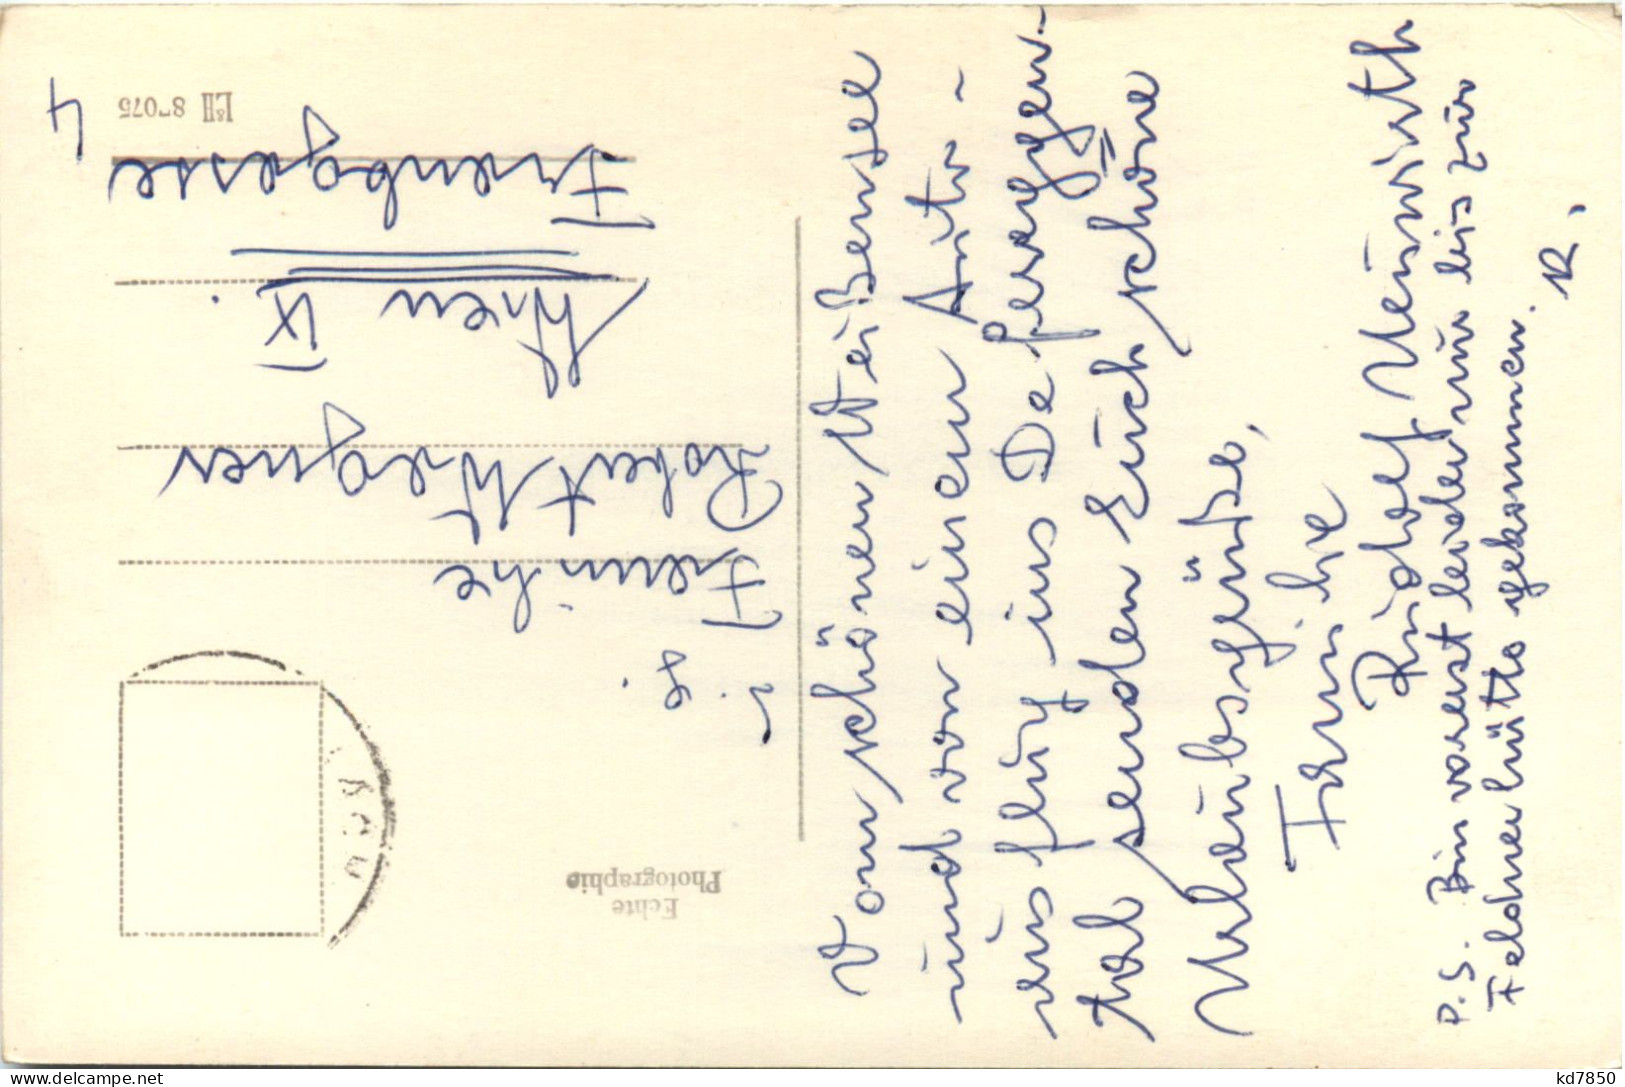 Vom schönen Weißensee
und von einem Auto-
ausflug ins Defereggen-
tal senden Euch schöne
Urlaubsgrüße,
Familie
Rudolf Neuwirth
P.S. Bin vorerst leider nur bis zur
Feldnerhütte gekommen. R.
Familie
Robert Wegner
Wien IX.
4
L&H 8 075
Echte
Photographie
kd7850